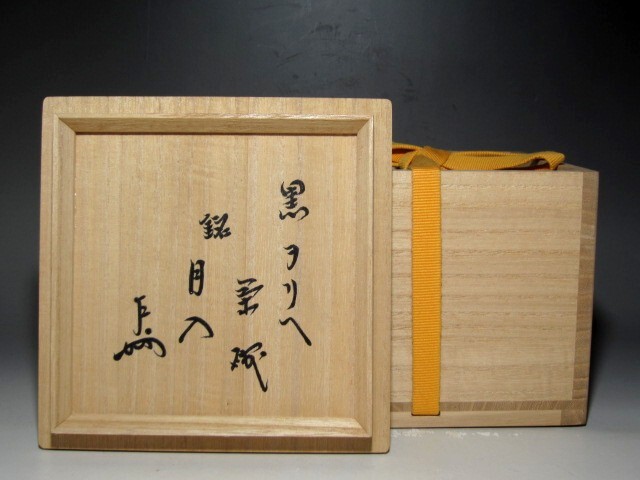 黒ヲリヘ
茶碗
銘
月入